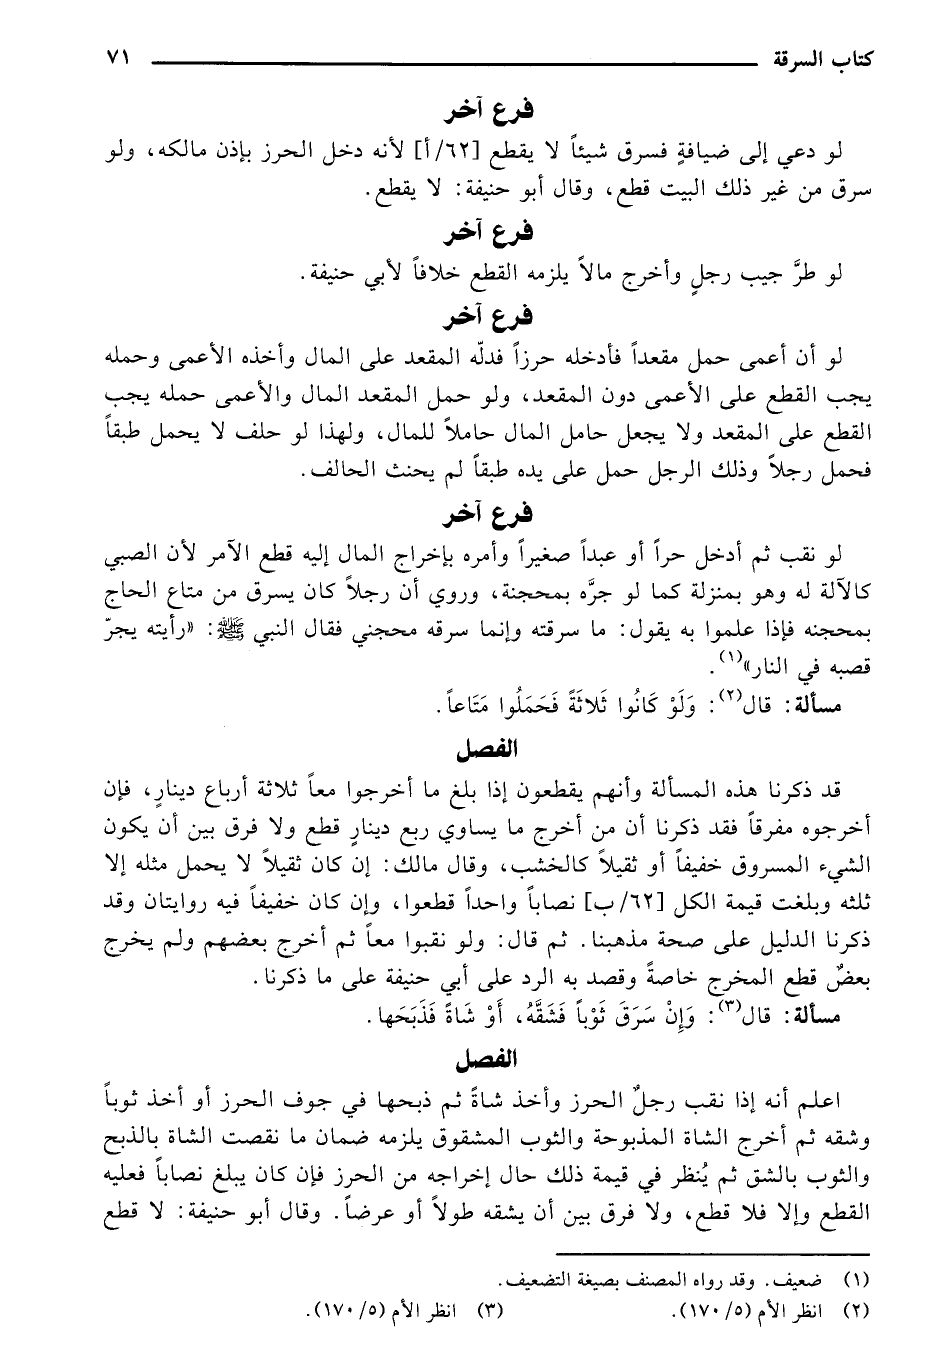 كتاب السرقة ٧١
فرع آخر
لو دعي إلى ضيافةٍ فسرق شيئاً لا يقطع [٦٢/أ] لأنه دخل الحرز بإذن مالكه، ولو
سرق من غير ذلك البيت قطع، وقال أبو حنيفة: لا يقطع.
فرع آخر
لو طرَّ جيب رجلٍ وأخرج مالاً يلزمه القطع خلافاً لأبي حنيفة.
فرع آخر
لو أن أعمى حمل مقعداً فأدخله حرزاً فدلّه المقعد على المال وأخذه الأعمى وحمله
يجب القطع على الأعمى دون المقعد، ولو حمل المقعد المال والأعمى حمله يجب
القطع على المقعد ولا يجعل حامل المال حاملاً للمال، ولهذا لو حلف لا يحمل طبقاً
فحمل رجلاً وذلك الرجل حمل على يده طبقاً لم يحنث الحالف.
فرع آخر
لو نقب ثم أدخل حراً أو عبداً صغيراً وأمره بإخراج المال إليه قطع الآمر لأن الصبي
كالآلة له وهو بمنزلة كما لو جرَّه بمحجنة، وروي أن رجلاً كان يسرق من متاع الحاج
بمحجنه فإذا علموا به يقول: ما سرقته وإنما سرقه محجني فقال النبي ﷺ: «رأيته يجرّ
قصبه في النار»(١).
مسألة: قال(٢): وَلَوْ كَانُوا ثَلاثَةً فَحَمَلُوا مَتَاعاً.
الفصل
قد ذكرنا هذه المسألة وأنهم يقطعون إذا بلغ ما أخرجوا معاً ثلاثة أرباع دينارٍ، فإن
أخرجوه مفرقاً فقد ذكرنا أن من أخرج ما يساوي ربع دينارٍ قطع ولا فرق بين أن يكون
الشيء المسروق خفيفاً أو ثقيلاً كالخشب، وقال مالك: إن كان ثقيلاً لا يحمل مثله إلا
ثلثه وبلغت قيمة الكل [٦٢/ب] نصاباً واحداً قطعوا، وإن كان خفيفاً فيه روايتان وقد
ذكرنا الدليل على صحة مذهبنا. ثم قال: ولو نقبوا معاً ثم أخرج بعضهم ولم يخرج
بعضٌ قطع المخرج خاصةً وقصد به الرد على أبي حنيفة على ما ذكرنا.
مسألة: قال(٣): وَإِنْ سَرَقَ ثَوْباً فَشَقَّهُ، أَوْ شَاةً فَذَبَحَها.
الفصل
اعلم أنه إذا نقب رجلٌ الحرز وأخذ شاةً ثم ذبحها في جوف الحرز أو أخذ ثوباً
وشقه ثم أخرج الشاة المذبوحة والثوب المشقوق يلزمه ضمان ما نقصت الشاة بالذبح
والثوب بالشق ثم يُنظر في قيمة ذلك حال إخراجه من الحرز فإن كان يبلغ نصاباً فعليه
القطع وإلا فلا قطع، ولا فرق بين أن يشقه طولاً أو عرضاً. وقال أبو حنيفة: لا قطع
(١) ضعيف. وقد رواه المصنف بصيغة التضعيف.
(٢) انظر الأم (٥/ ١٧٠). (٣) انظر الأم (٥/ ١٧٠).